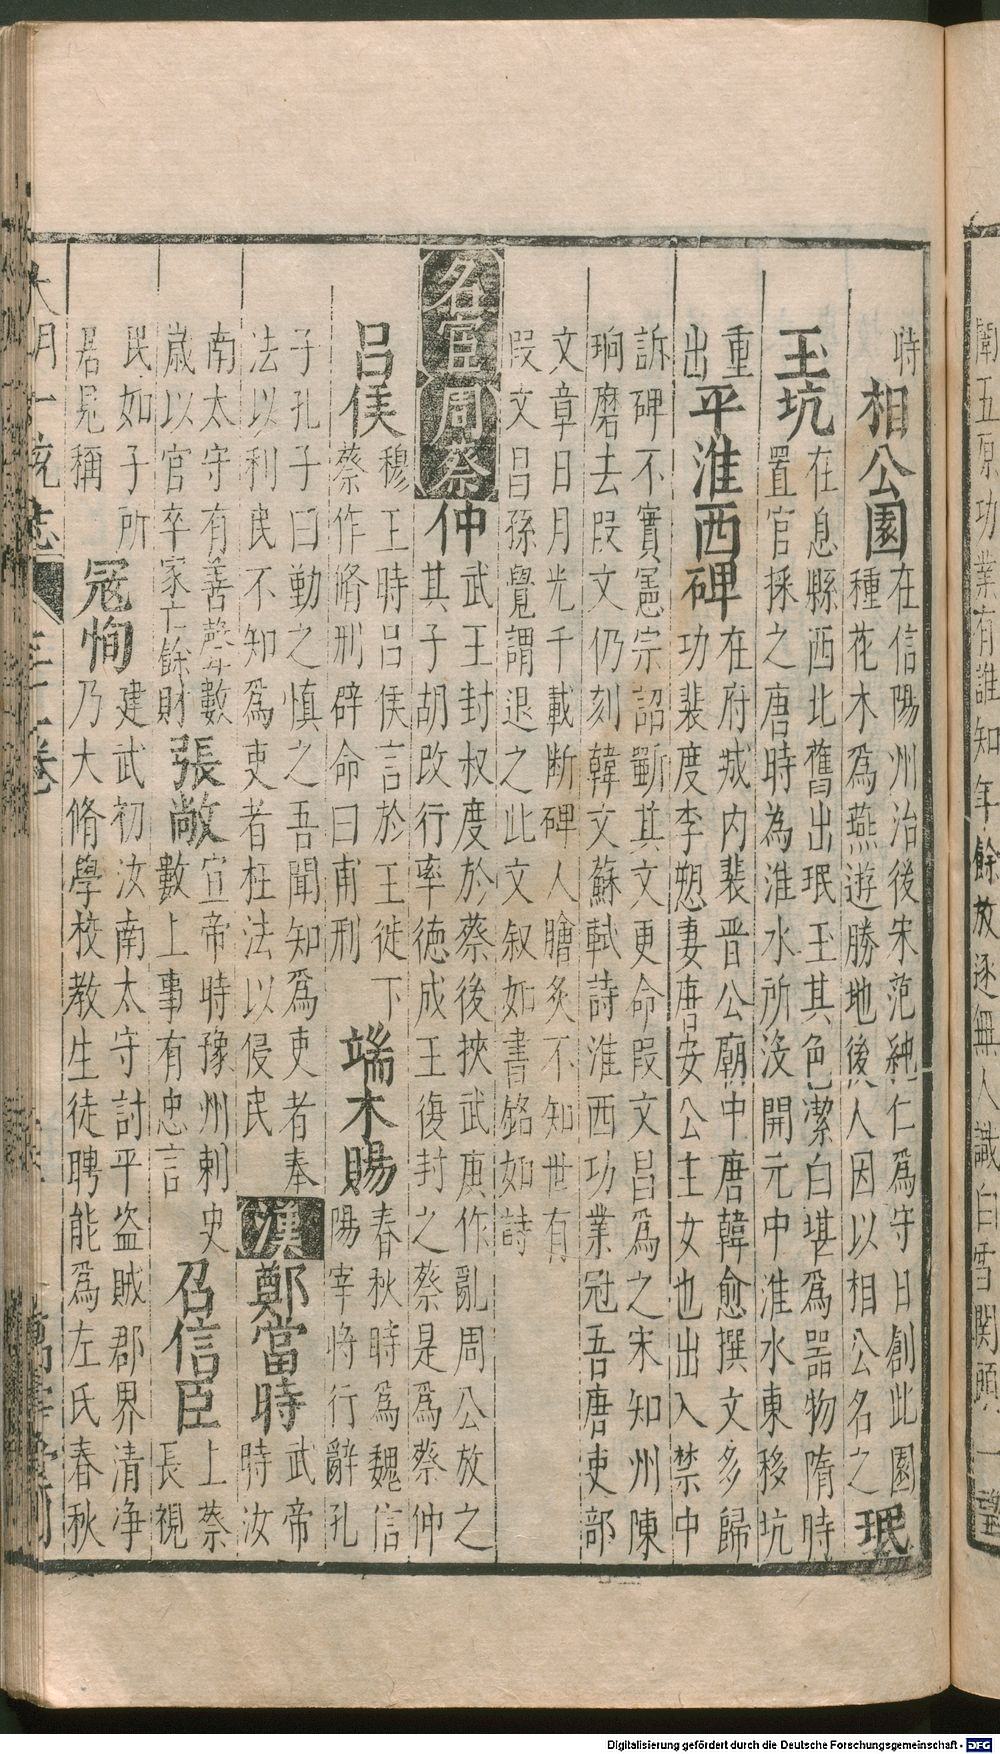 時
相公園
在信陽州治後宋范純仁爲守日創此園
種花木爲燕遊勝地後人因以相公名之
珉
玉坑
在息縣西北舊出珉玉其色潔白堪爲器物隋時
置官採之唐時為淮水所沒開元中淮水東移坑
重
出
平淮西碑
在府城內裴晋公廟中唐韓愈撰文多歸
功裴度李愬妻唐安公主女也出入禁中
訴碑不實憲宗詔斲其文更命段文昌爲之宋知州陳
珦磨去段文仍刻韓文蘇軾詩淮西功業冠吾唐吏部
文章日月光千載断碑人膾炙不知世有
段文昌孫覺謂退之此文叙如書銘如詩
名宦周蔡仲
武王封叔度於蔡後挾武庚作亂周公放之
其子胡改行率德成王復封之蔡是爲蔡仲
呂侯
穆王時呂侯言於王徙下
蔡作脩刑辟命曰甫刑
端木賜
春秋時爲魏信
陽宰將行辭孔
子孔子曰勤之慎之吾聞知爲吏者奉
法以利民不知爲吏者枉法以侵民
漢
鄭當時
武帝
時汝
南太守有善聲數
歲以官卒家亡餘財
張敞
宣帝時豫州刺史
數上事有忠言
召信臣
上蔡
長視
民如子所
居見稱
冦恂
建武初汝南太守討平盗賊郡界清净
乃大脩學校教生徒聘能爲左氏春秋
大明一統志
三十一卷
萬壽堂刊
衛五原功業有誰知年餘放逐無人識白雪関頭一望
Digitalisierung gefördert durch die Deutsche Forschungsgemeinschaft - DFG